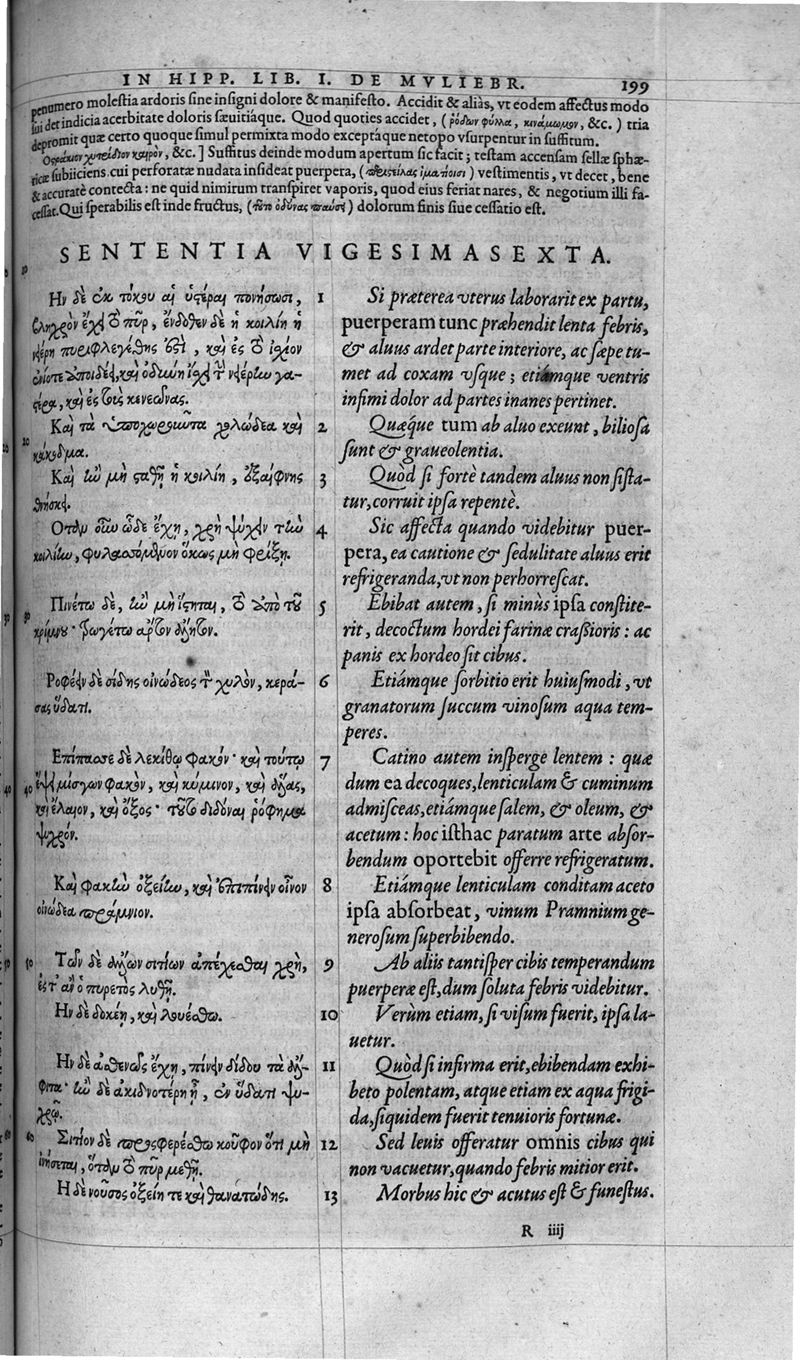 IN HIPP. LIB. I. DE MVLIEBR. 199
penumero molestia ardoris sine insigni dolore & manifesto. Accidit & aliàs, vt eodem affectus modo
sui det indicia acerbitate doloris sæuitiáque. Quod quoties accidet, (ῥόδων φύλλα, κινάμωμον, &c.) tria
depromit quæ certo quoque simul permixta modo exceptáque netopo vsurpentur in suffitum.
&c.] Suffitus deinde modum apertum sic facit; testam accensam sellæ sphæ-
ricæ subiiciens cui perforatæ nudata insideat puerpera, ( ἱματίοισι) vestimentis, vt decet, bene
& accuratè contecta: ne quid nimirum transpiret vaporis, quod eius feriat nares, & negotium illi fa-
cessat. Qui sperabilis est inde fructus, ( ὀδύνας παύσῃ) dolorum finis siue cessatio est.
SENTENTIA VIGESIMASEXTA.
Ην δὲ ἐκ τόκου αἱ ὑστέραι πονήσωσι,
βληχρὸν ἔχει τὸ πῦρ, ἔνδοθεν δὲ ἡ κοιλίη ἡ
νέρη πυριφλεγέθης ἐστὶ, καὶ ἐς τὸ ἰσχίον
ἐνίοτε καὶ ὀδύνη ἴσχει τὴν γα-
στέρα, καὶ ἐς τοὺς κενεῶνας.
Καὶ τὰ ὑποχωρέοντα χολώδεα καὶ
κάκοδμα.
Καὶ ἢν μὴ σταθῇ ἡ κοιλίη, ἐξαίφνης
θνήσκει.
Οταν οὕτω ὧδε ἔχῃ, χρὴ ψύχειν τὴν
κοιλίην, φυλασσόμενον ὅκως μὴ φρίξῃ.
Πινέτω δὲ, ἢν μὴ ἵστηται, τὸ ἀπὸ τοῦ
κρίμνου· φαγέτω ἄρτον
Ροφέειν δὲ σίδης οἰνώδεος τὸν χυλὸν, κερά-
σας ὕδατι.
Επίπασσε δὲ λεκίθῳ φακόν· καὶ τούτῳ
ἕψει μίσγων φακὸν, καὶ κύμινον, καὶ ἅλας,
καὶ ἔλαιον, καὶ ὄξος· τοῦτο διδόναι ῥόφημα
ψυχρόν.
Καὶ φακὴν ὀξείην, καὶ ἐπιπίνειν οἶνον
οἰνώδεα πράμνιον.
Τῶν δὲ ἄλλων σιτίων ἀπέχεσθαι χρὴ,
ἔστ' ἂν ὁ πυρετὸς λυθῇ.
Ην δὲ δοκέῃ, καὶ λουέσθω.
Ην δὲ ἀσθενῶς ἔχῃ, πίνειν δίδου τὰ ἄλ-
φιτα· ἢν δὲ ἀκιδνοτέρη ᾖ, ἐν ὕδατι ψυ-
χρῷ.
Σιτίον δὲ προσφερέσθω κοῦφον ὅτι μὴ
ὅταν τὸ πῦρ μεθῇ.
Η δὲ νοῦσος ὀξείη τε καὶ θανατώδης.
1 Si præterea vterus laborarit ex partu,
puerperam tunc præhendit lenta febris,
& aluus ardet parte interiore, ac sæpe tu-
met ad coxam vsque; etiámque ventris
infimi dolor ad partes inanes pertinet.
2 Quæque tum ab aluo exeunt, biliosa
sunt & graueolentia.
3 Quòd si fortè tandem aluus non sista-
tur, corruit ipsa repentè.
4 Sic affecta quando videbitur puer-
pera, ea cautione & sedulitate aluus erit
refrigeranda, vt non perhorrescat.
5 Ebibat autem, si minùs ipsa constite-
rit, decoctum hordei farinæ crassioris: ac
panis ex hordeo sit cibus.
6 Etiámque sorbitio erit huiusmodi, vt
granatorum succum vinosum aqua tem-
peres.
7 Catino autem insperge lentem: quæ
dum ea decoques, lenticulam & cuminum
admisceas, etiámque salem, & oleum, &
acetum: hoc isthac paratum arte absor-
bendum oportebit offerre refrigeratum.
8 Etiámque lenticulam conditam aceto
ipsa absorbeat, vinum Pramnium ge-
nerosum superbibendo.
9 Ab aliis tantisper cibis temperandum
puerperæ est, dum soluta febris videbitur.
10 Verùm etiam, si visum fuerit, ipsa la-
uetur.
11 Quòd si infirma erit, ebibendam exhi-
beto polentam, atque etiam ex aqua frigi-
da, siquidem fuerit tenuioris fortunæ.
12 Sed leuis offeratur omnis cibus qui
non vacuetur, quando febris mitior erit.
13 Morbus hic & acutus est & funestus.
R iiij